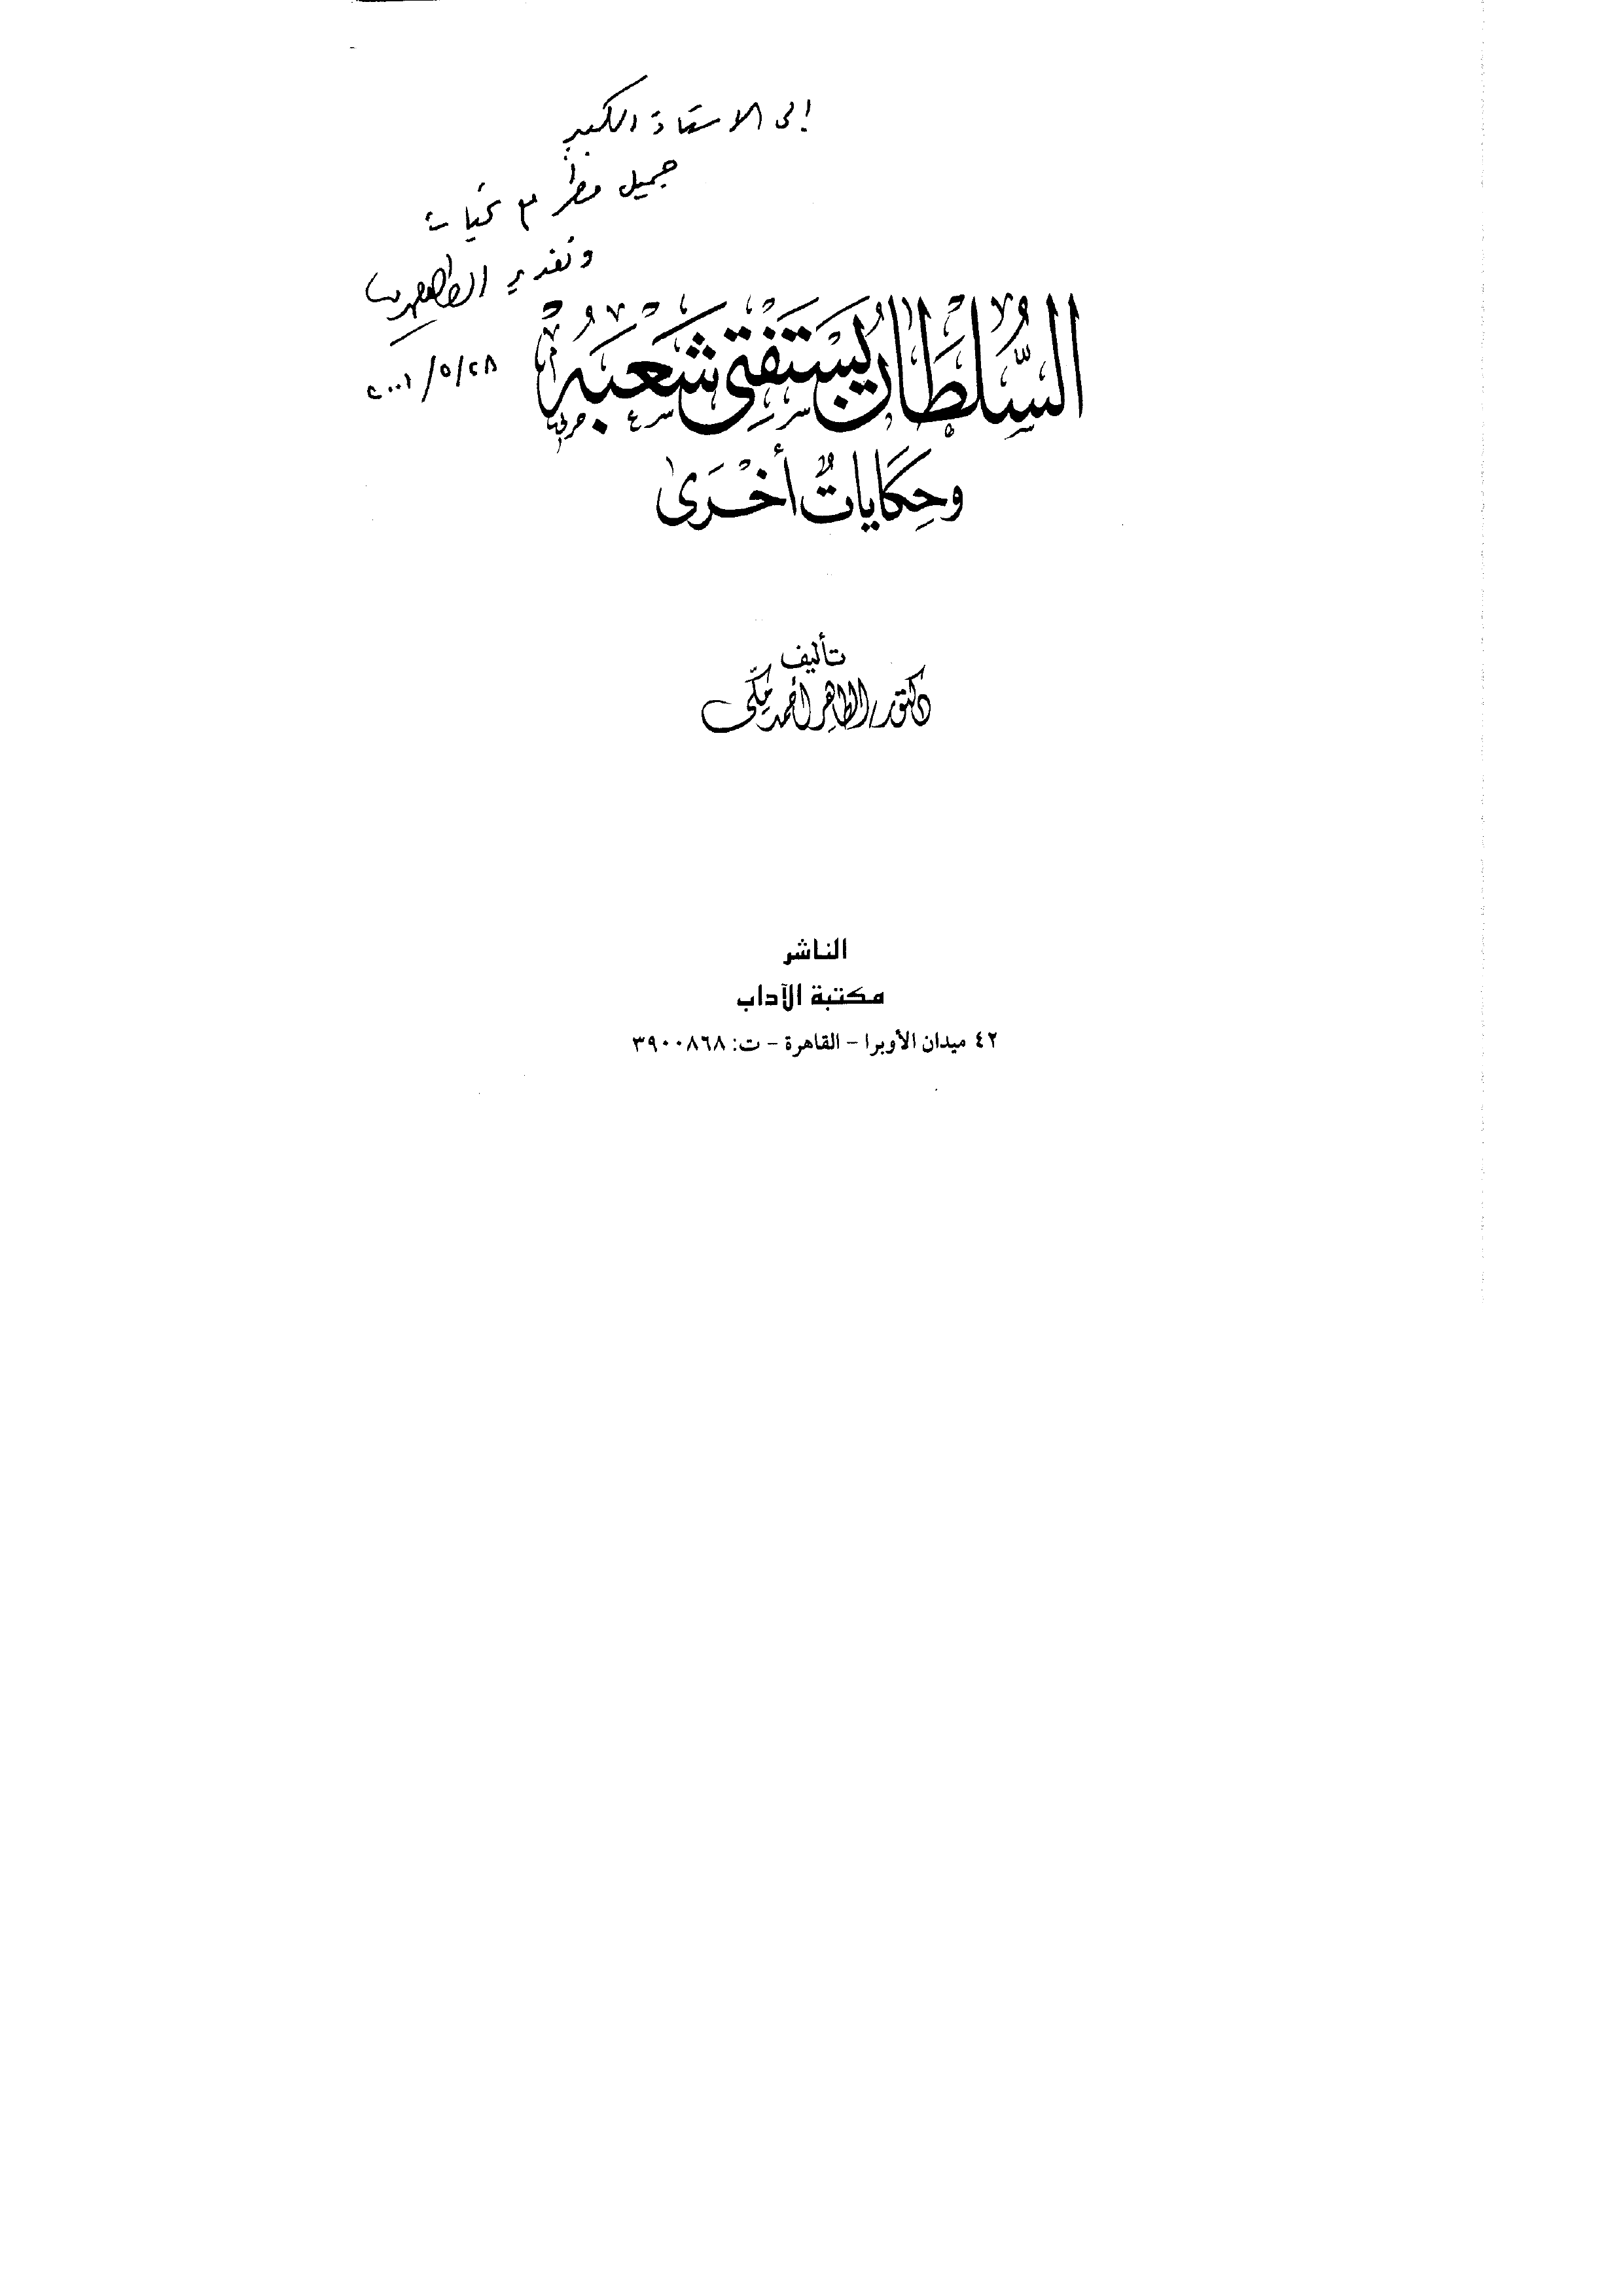 إلى الاستاذ الكبير
جميل مطر مع تحيات
وتقدير الطاهر
٢٠٠١/٥/٢٨
السُّلطانُ يَسْتَفْتِى شَعْبَهُ
وحِكَايَاتٌ أُخْرَى
تأليف
دكتور الطاهر أحمد مكّى
الناشر
مكتبة الآداب
٤٢ ميدان الأوبرا - القاهرة - ت: ٣٩٠٠٨٦٨